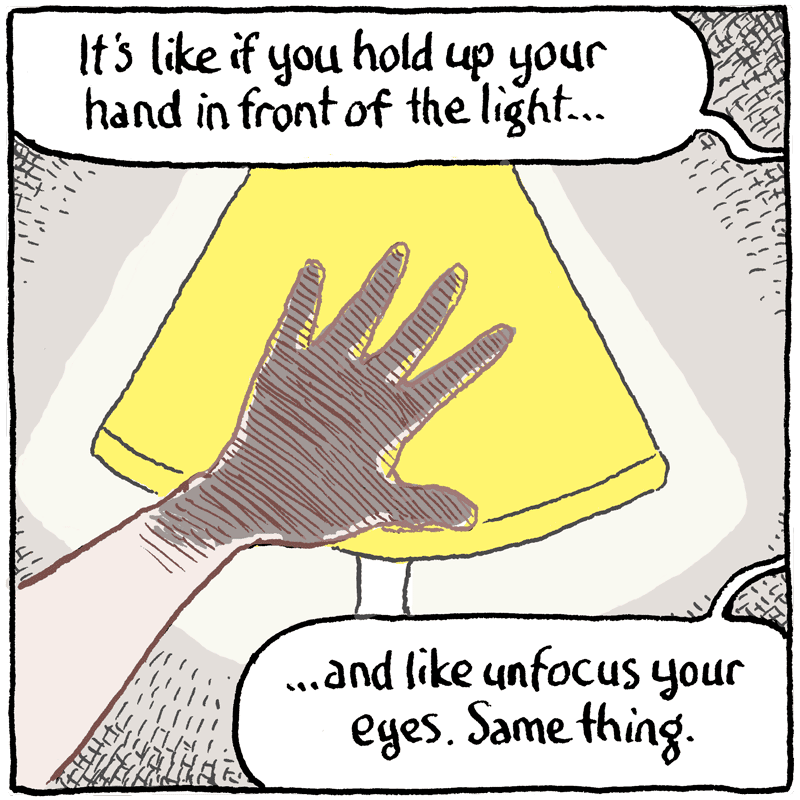 It's like if you hold up your
hand in front of the light...
...and like unfocus your
eyes. Same thing.